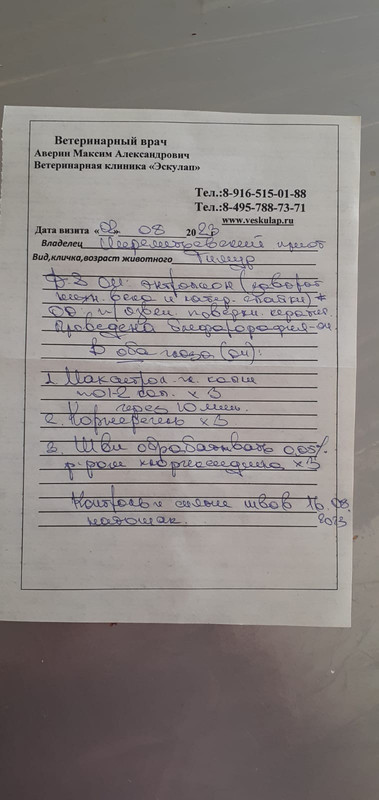 Ветеринарный врач
Аверин Максим Александрович
Ветеринарная клиника «Эскулап»
Тел.:8-916-515-01-88
Тел.:8-495-788-73-71
www.veskulap.ru
Дата визита «02» 08 2023
Владелец Шереметьевский приют
Вид,кличка,возраст животного Тимур
Д-З OU: энтропион (заворот
нижн. века и латер. спайки)*
OD поверхн.
Проведена блефарорафия - OU.
В оба глаза (OU):
1. Макситрол гл. капли
по 1-2 кап. х 3
через 10 мин.
2. Корнерегель х 3
3. Швы обрабатывать 0,05%
р-ром хлоргексидина х 3
Контроль и снятие швов 16.08.
2023
натощак.